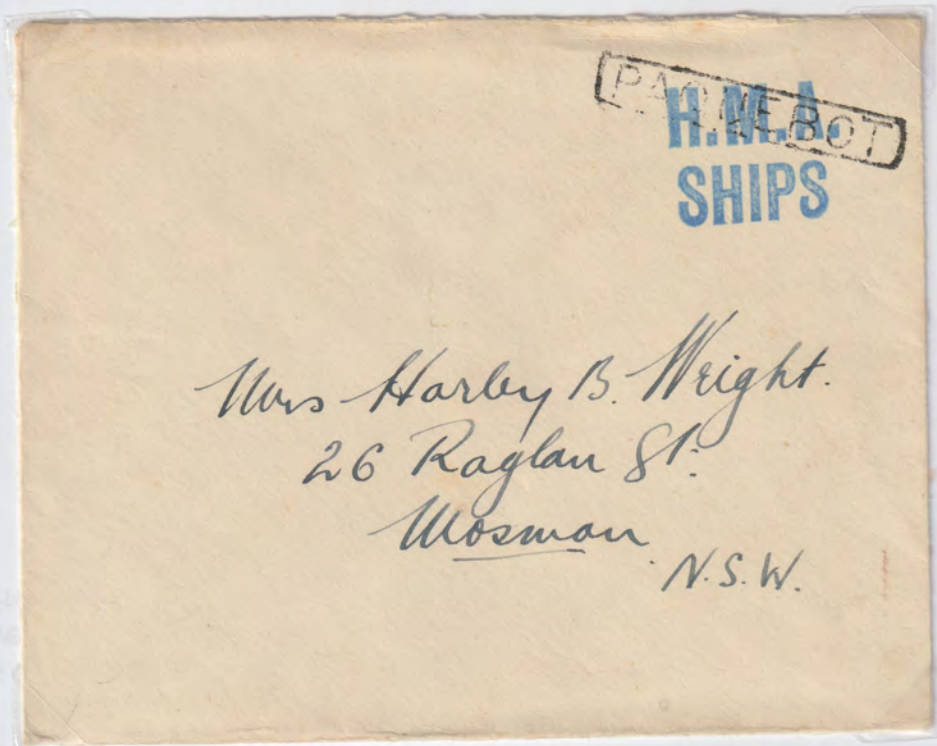 PAQUEBOT
H.M.A.
SHIPS
Mrs Harley B. Wright.
26 Raglan St.
Mosman
N.S.W.